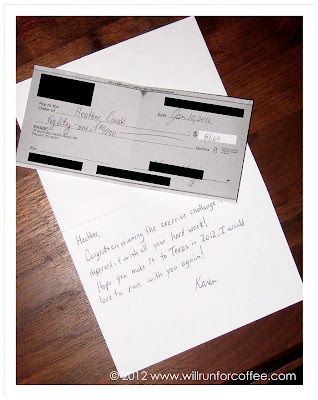 Pay to the
Order of
Heather
Date
Jan 10, 2012
Eighty-one
$
81.00
Dollars
CHASE
For
Heather,
Congrats on winning the exercise challenge.
deserved it with all your hard work!
Hope you make it to Texas in 2012, I would
love to run with you again!
Karen
© 2012 www.willrunforcoffee.com